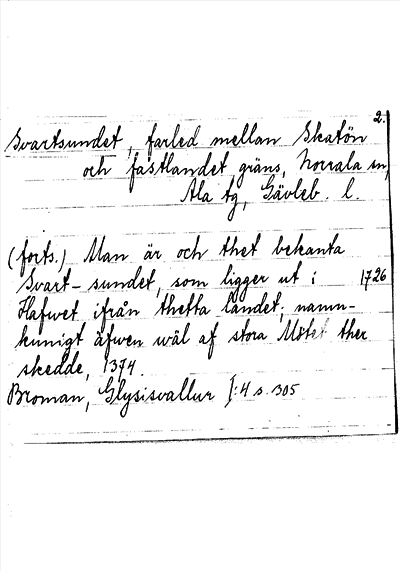 2.
Svartsundet, farled mellan Skatön
och fastlandet, gräns, Norrala sn,
Ala tg, Gävleb. l.
(forts.) Man är och thet bekanta
Svart-sundet, som ligger ut i 1726
Hafwet ifrån thetta landet, namn-
kunigt äfwen wäl af stora Mötet ther
skedde, 1374.
Broman, Glysisvallur I:4 s. 305